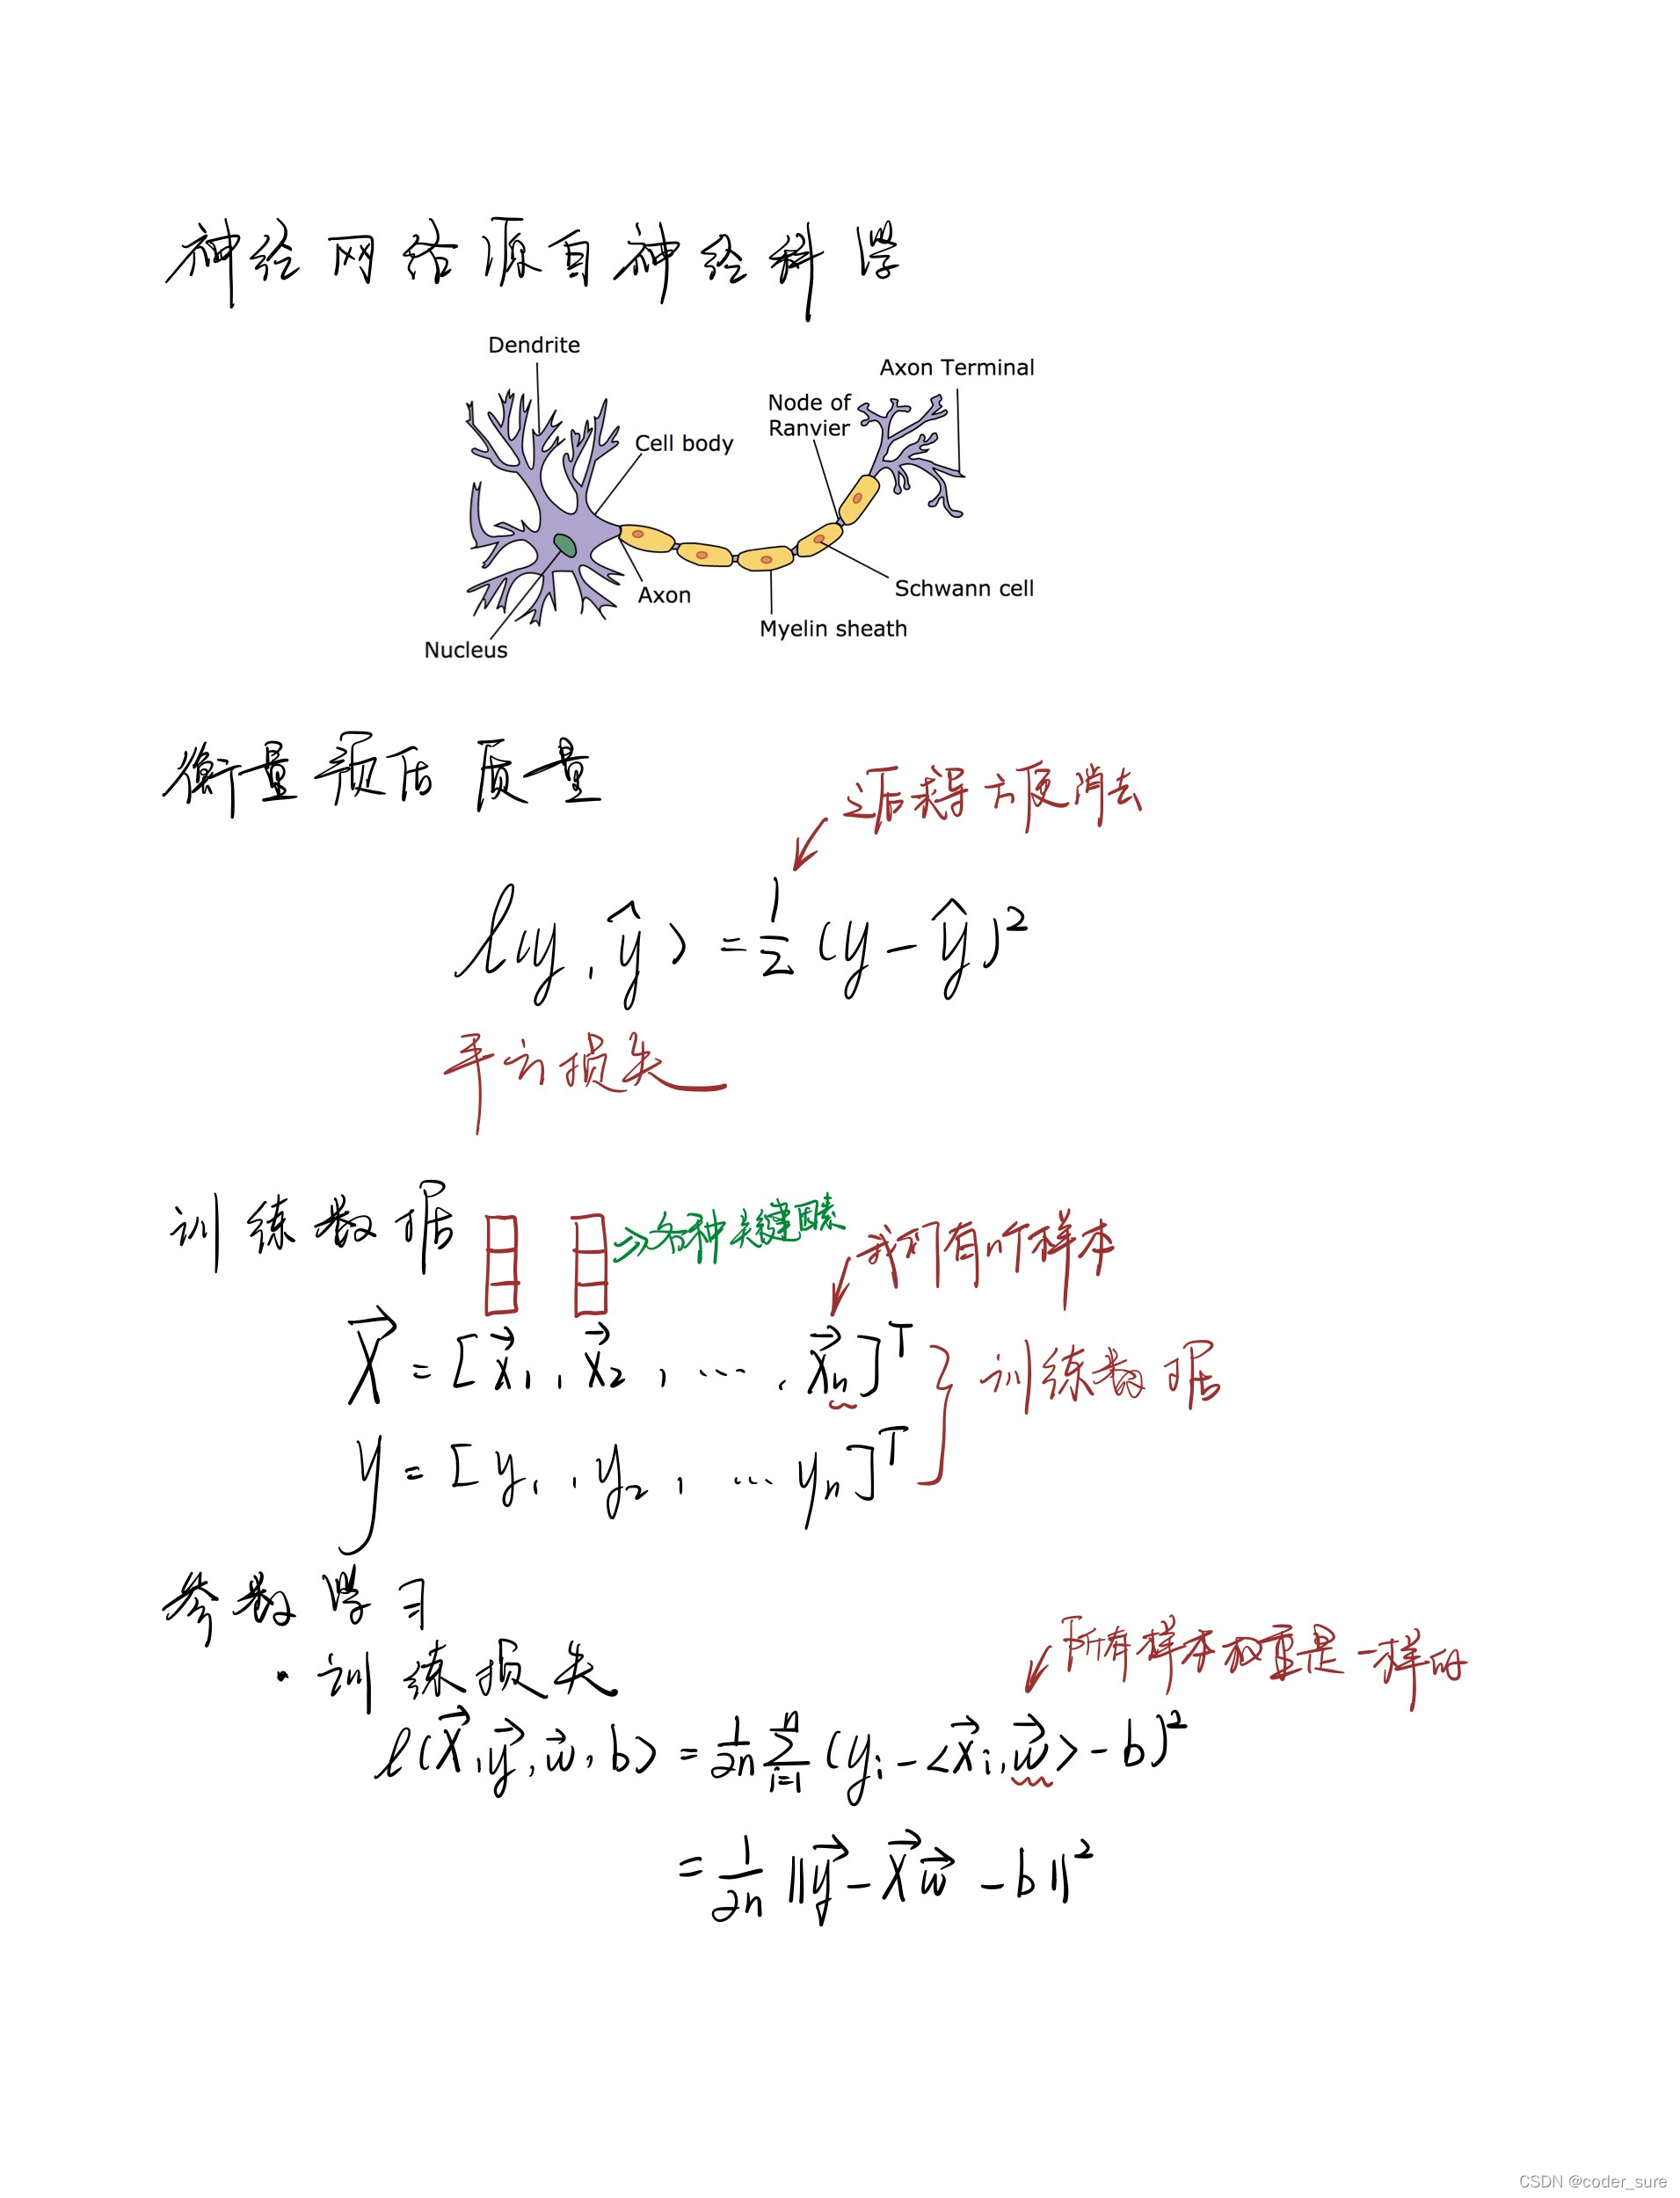 神经网络源自神经科学
Dendrite
Axon Terminal
Node of
Ranvier
Cell body
Schwann cell
Axon
Myelin sheath
Nucleus
衡量预估质量
之后求导方便消去
ℓ(y, ŷ) = 1/2 (y - ŷ)²
平方损失
训练数据
⇒各种关键因素
我们有n个样本
X⃗ = [x⃗₁, x⃗₂, ..., x⃗ₙ]ᵀ
训练数据
y = [y₁, y₂, ... yₙ]ᵀ
参数学习
所有样本权重是一样的
· 训练损失
ℓ(X⃗, y⃗, w⃗, b) = 1/2n Σⁿᵢ₌₁ (yᵢ - <x⃗ᵢ, w⃗> - b)²
= 1/2n ||y⃗ - X⃗w⃗ - b||²
CSDN @coder_sure